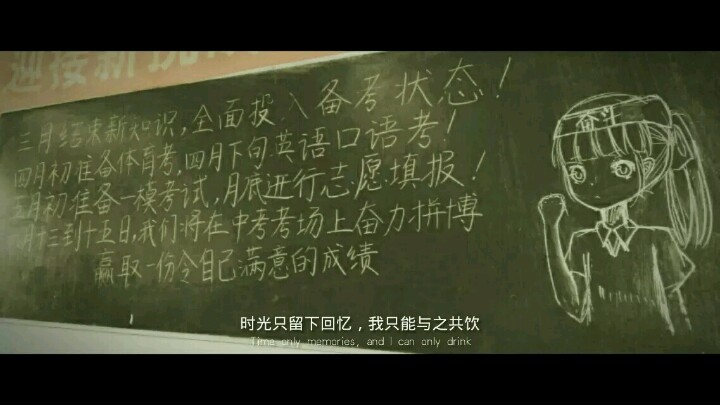 迎接新
三月结束新知识,全面投入备考状态!
四月初准备体育考,四月下旬英语口语考!
五月初准备一模考试,月底进行志愿填报!
月十三到十五日,我们将在中考考场上奋力拼博
赢取一份令自己满意的成绩
奋斗
时光只留下回忆，我只能与之共饮
Time only memories, and I can only drink